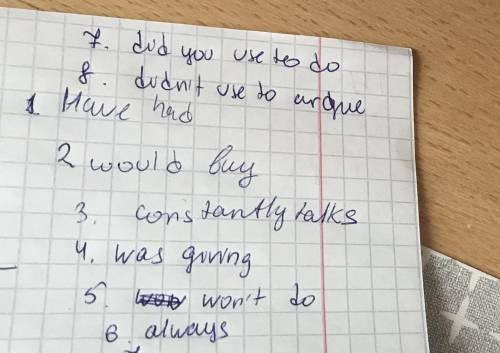 7. did you use to do
8. didn't use to argue
1 Have had
2 would buy
3. constantly talks
4. was giving
5. won't do
6. always